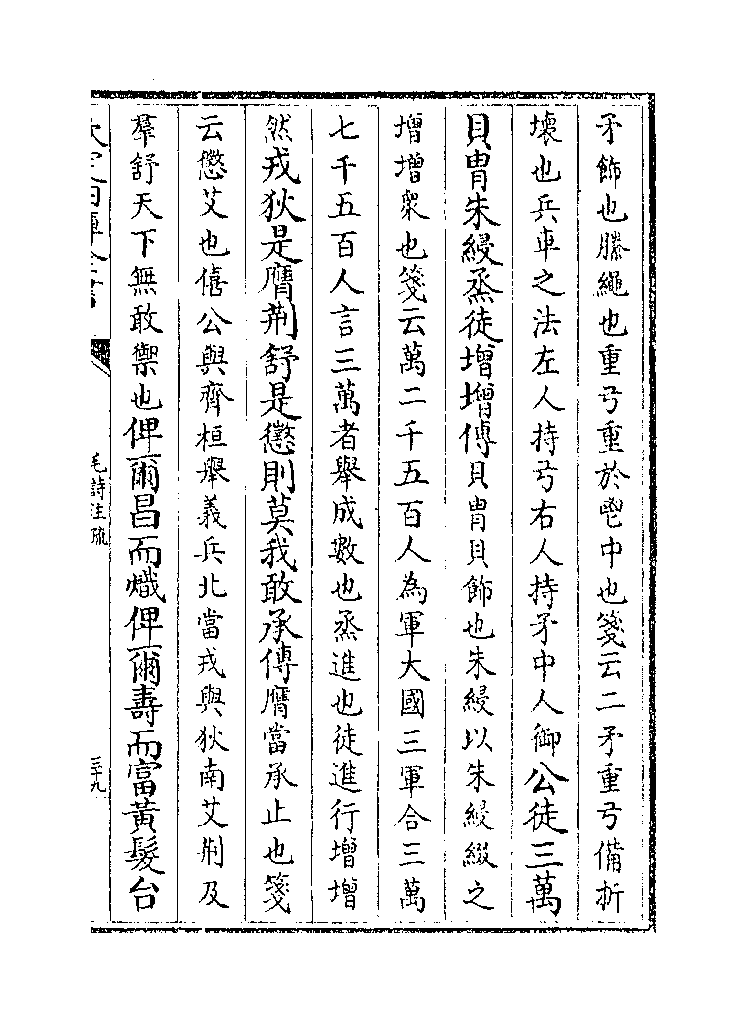 矛飾也縢繩也重弓重於鬯中也箋云二矛重弓備折
壊也兵車之法左人持弓右人持矛中人御公徒三萬
貝胄朱綅烝徒增增傳貝胄貝飾也朱綅以朱綅綴之
增增衆也箋云萬二千五百人為軍大國三軍合三萬
七千五百人言三萬者舉成數也烝進也徒進行增增
然戎狄是膺荆舒是懲則莫我敢承傳膺當承止也箋
云懲艾也僖公與齊桓舉義兵北當戎與狄南艾荆及
羣舒天下無敢禦也俾爾昌而熾俾爾壽而富黃髮台
毛詩注疏
三十九